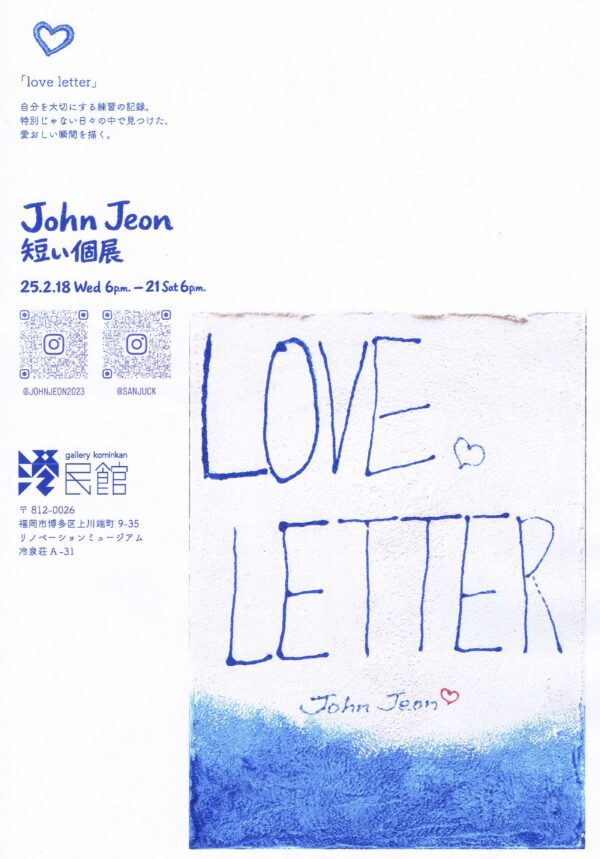 「love letter」
自分を大切にする練習の記録。
特別じゃない日々の中で見つけた、
愛おしい瞬間を描く。
John Jeon
短い個展
25.2.18 Wed 6p.m. – 21 Sat 6p.m.
@JOHNJEON2023
@SANJUCK
gallery kominkan
港民館
〒812-0026
福岡市博多区上川端町 9-35
リノベーションミュージアム
冷泉荘 A-31
LOVE
LETTER
John Jeon